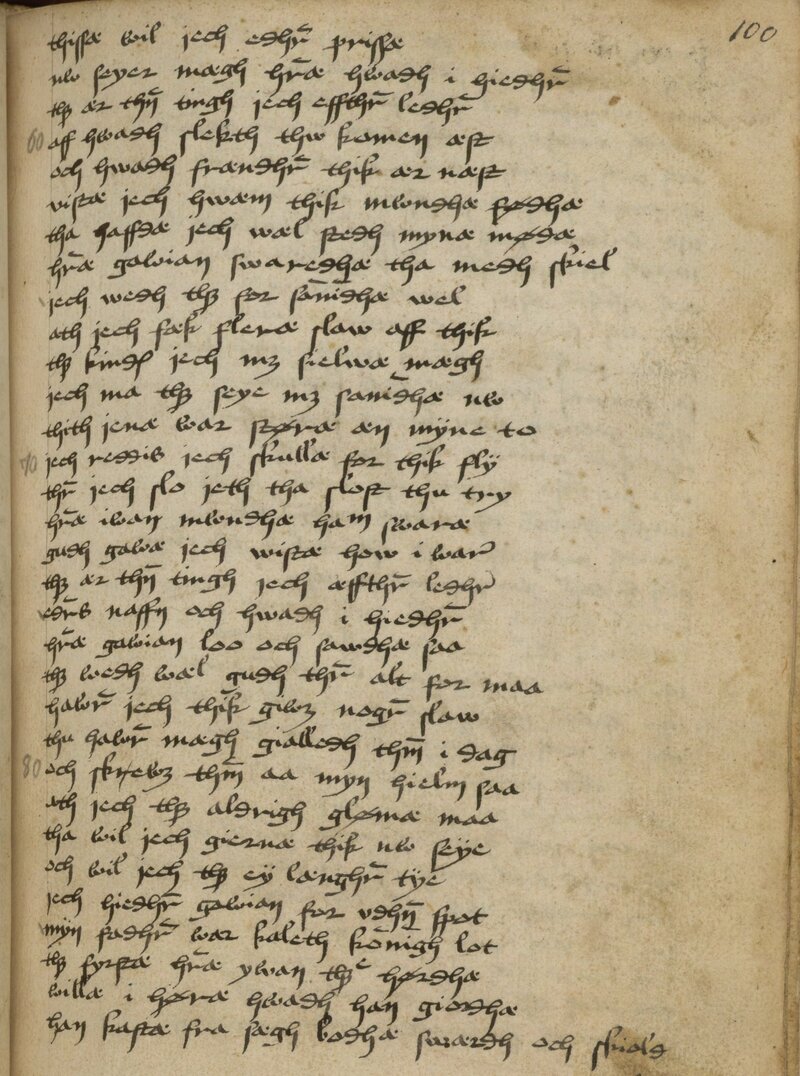 100
thissæ wil jech edhr prissæ
nw seyer mægh hræ hwadh i hiedhr
thz ær thn tingh jech effthr ledhr
60 aff hwadh slekth thw komen æst
och hwadh frændhr thik ær næst
vistæ jech hwæm thik mwndhæ fødhæ
tha haffdæ jech wæl stedh mynæ mødæ
hræ gawian swaredhæ tha medh skiel
jech wedh thz for sanidhæ wel
ath jech fæk fleræ slaw aff thik
thz kindes jech mz sielwæ mægh
jech ma thz seye mz sanidhæ nw
thith jenæ war støræ æn myne to
70 jech reddis jech skullæ for thik fly
thr jech slo jeth tha slost thu try
hræ iwan mwndhæ ham swaræ
gudh gawæ jech wistæ how i war
thz ær thn tingh jech æffthr ledhr
edhrs naffn och hwadh i hiedhr
hræ gawian loo och sawdhæ saa
thz wedh wæl gudh thr alt for maa
hawr jech thik giwz nogr slaw
thu hawr mægh gialledh thm i dag
80 och skrewz thm aa myn hielm saa
ath jech thz aldrigh glømæ maa
tha wil jech giernæ thik nw seye
och wil jech thz ey længhr tye
jech hiedhr gawian for vdhn spot
myn fadhr war kaleth konigh lot
thz fyrstæ hræ ywan thz hørdhæ
willæ i høræ hwadh han giordhæ
han kastæ fra sægh bodhæ swærdh och skiold